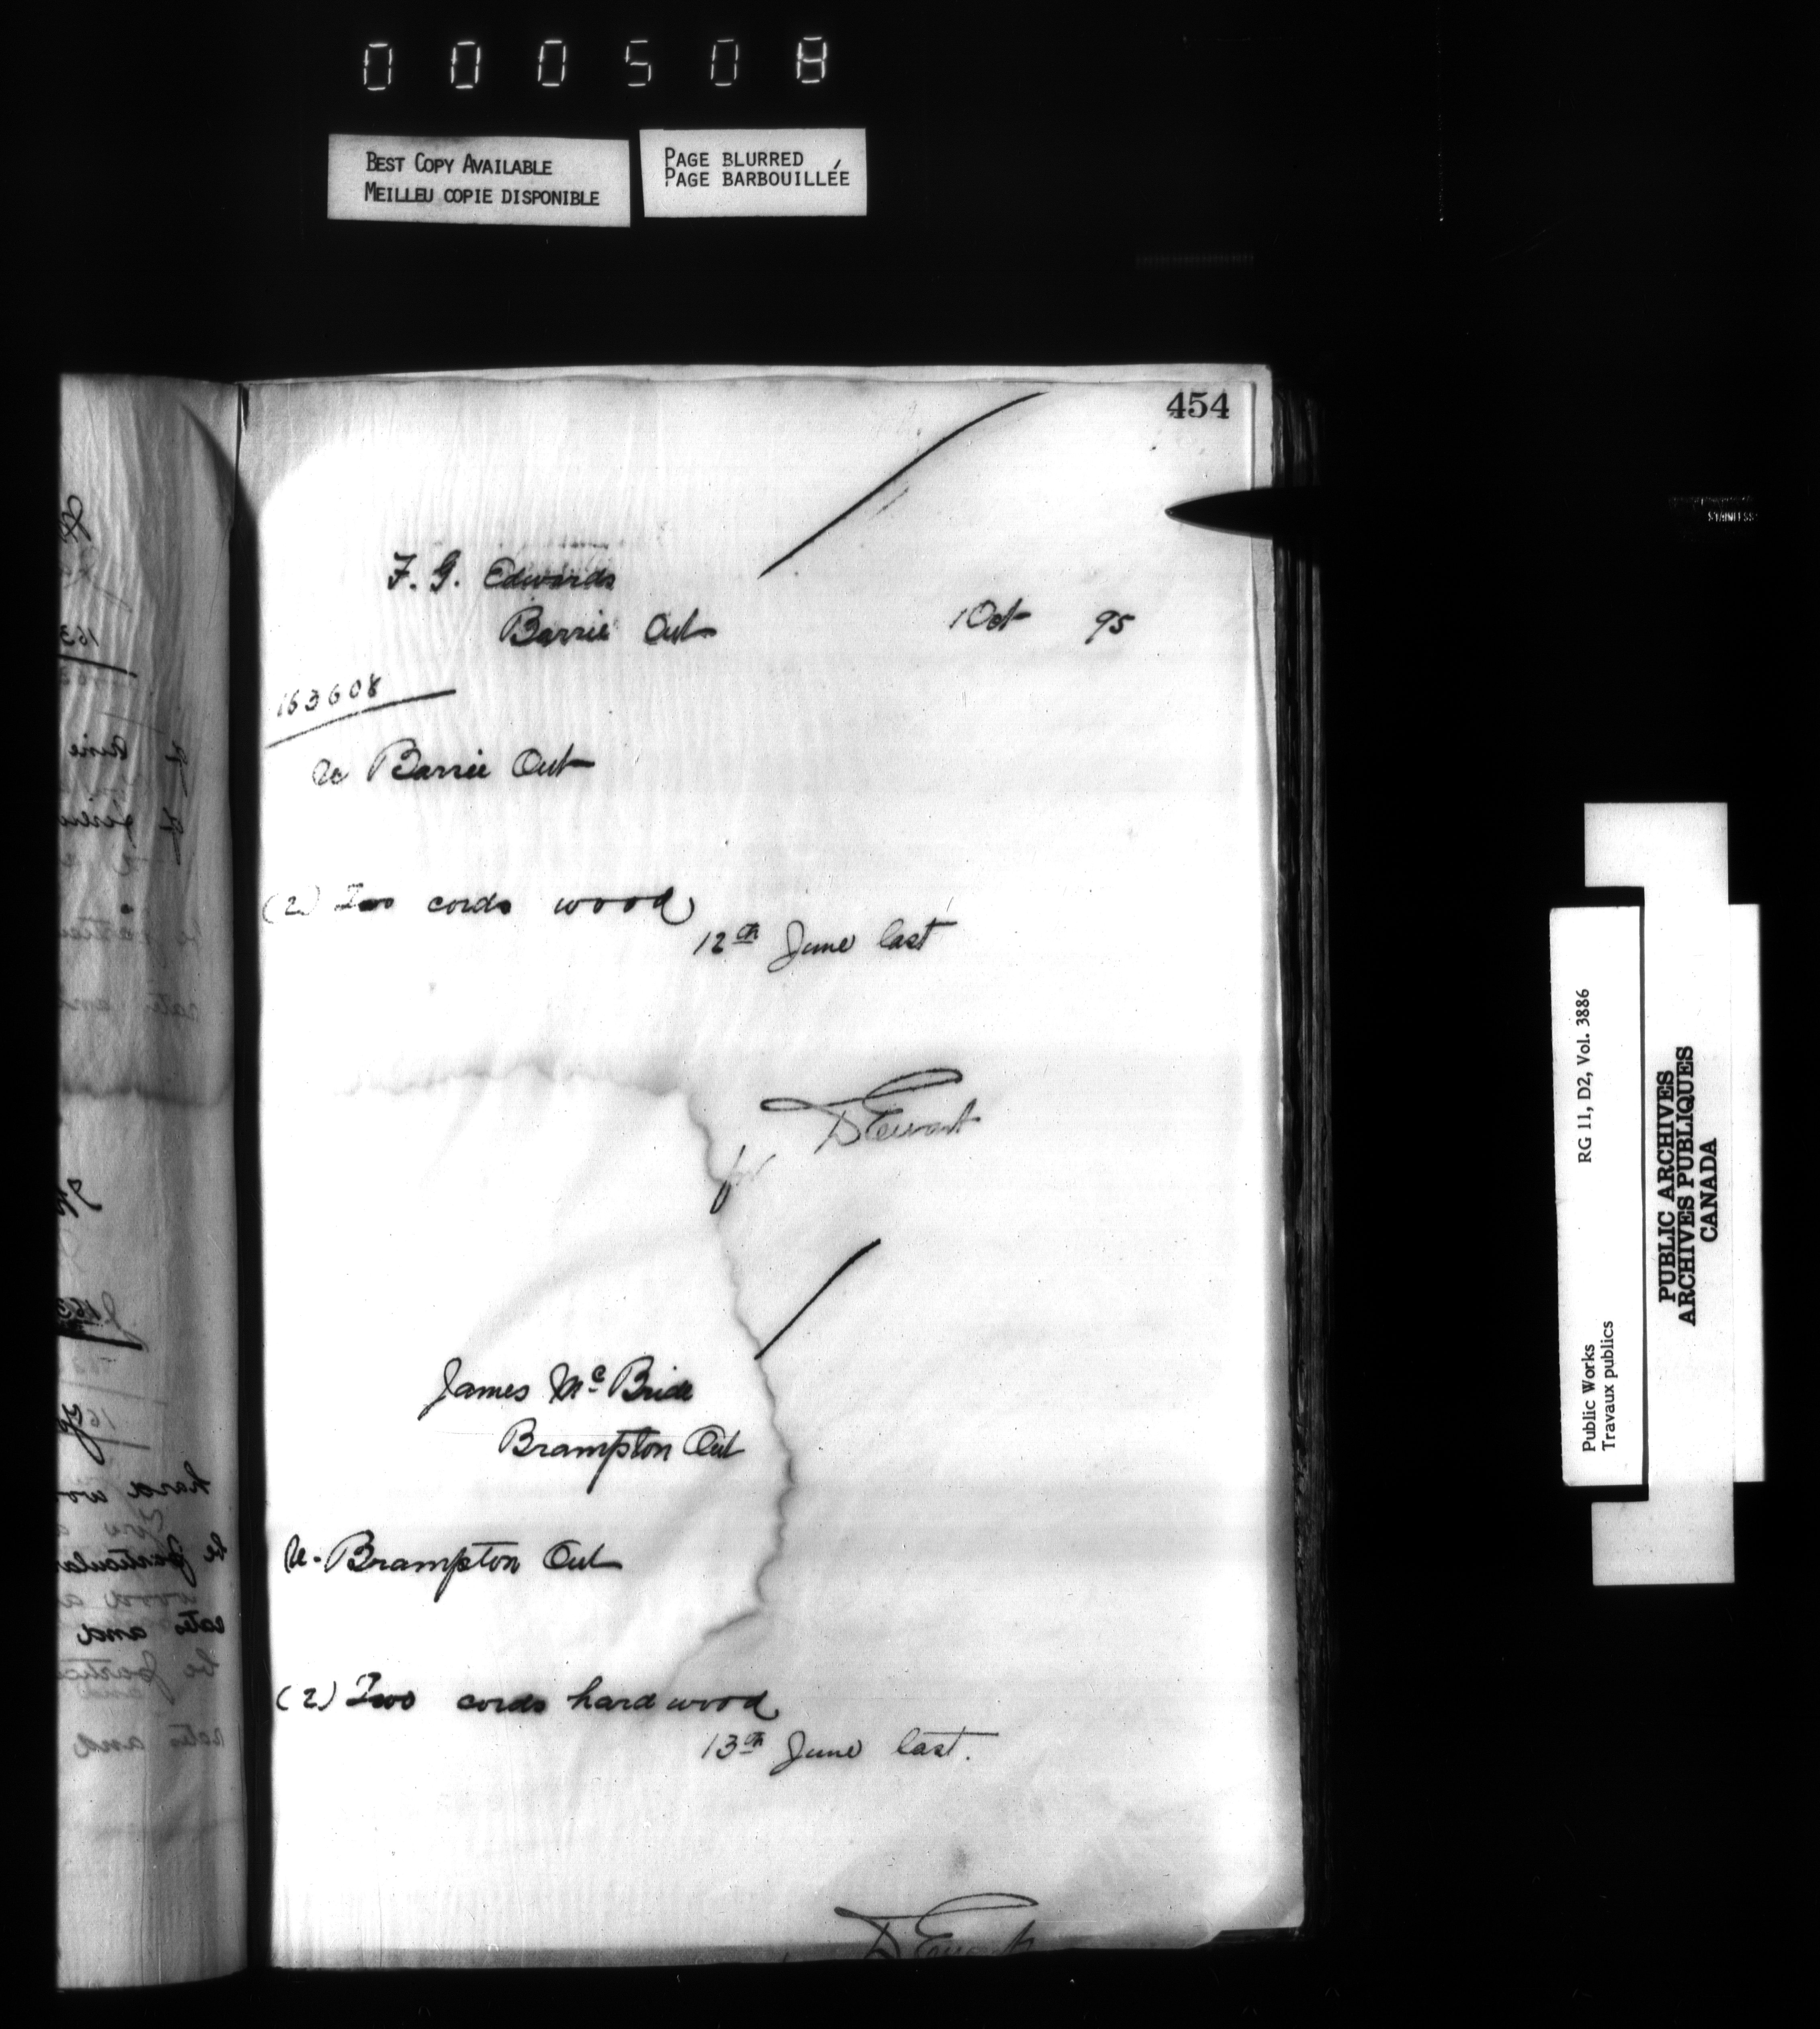 000508
BEST COPY AVAILABLE
MEILLEU COPIE DISPONIBLE
PAGE BLURRED
PAGE BARBOUILLÉE
454
F. G. Edwards
Barrie Ont
1 Oct 95
163608
Re Barrie Ont
(2) Two cords wood
12th June last
DEwart
for
James McBride
Brampton Ont
Re Brampton Ont
(2) Two cords hard wood
13th June last.
DEwart
STAINLESS
RG 11, D2, Vol. 3886
Public Works
Travaux publics
PUBLIC ARCHIVES
ARCHIVES PUBLIQUES
CANADA